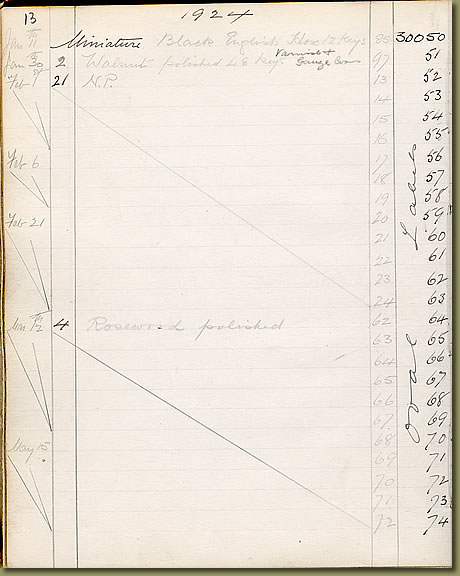 13 1924
Jan 11 Miniature Black English 12 Keys 85 30050
Jan 30 2 Walnut polished 48 Key Varnish + 97 51
Feb 1st 21 N.P. 13 52
14 53
15 54
16 55
Feb 6 17 56
18 57
19 58
20 59
Feb 21 21 60
22 61
23 62
24 63
Mar 12 4 Rosewood polished 62 64
63 65
64 66
65 67
66 68
67 69
May 15 68 70
69 71
70 72
71 73
72 74
Oval Labels